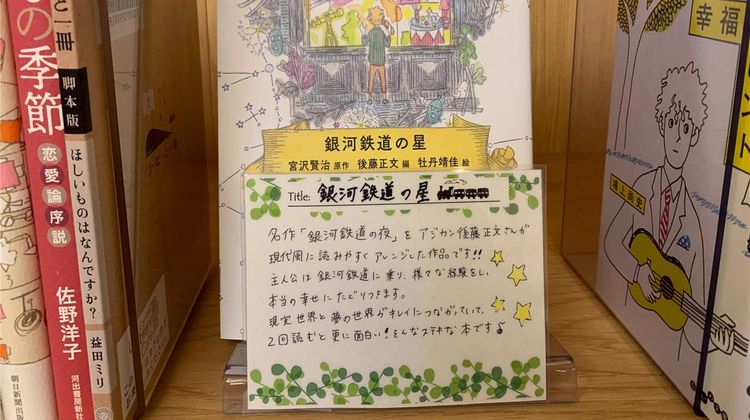 と一冊
脚本版
ほしいものはなんですか?
益田ミリ
の季節
恋愛論序説
佐野洋子
河出書房新社
朝日新聞出版
銀河鉄道の星
宮沢賢治 原作 後藤正文 編 牡丹靖佳 絵
Title: 銀河鉄道の星
名作「銀河鉄道の夜」を アジカン後藤正文さんが
現代風に読みやすく アレンジした作品です!!
主人公は銀河鉄道に乗り、様々な経験をし、
本当の幸せにたどりつきます。
現実世界と夢の世界がキレイにつながっていて、
2回読むと更に面白い!そんなステキな本です♪
幸福
浦上尚史